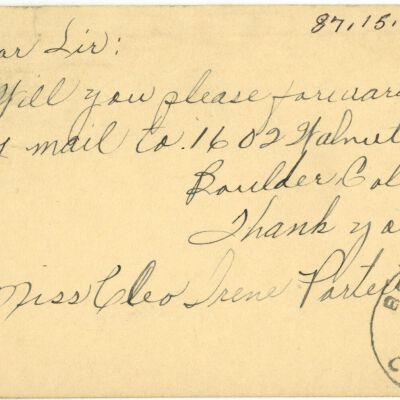 87.15.
ar Sir:
Will you please forward
y mail to. 1602 Walnut
Boulder Col
Thank yo
Miss Cleo Irene Porter
B